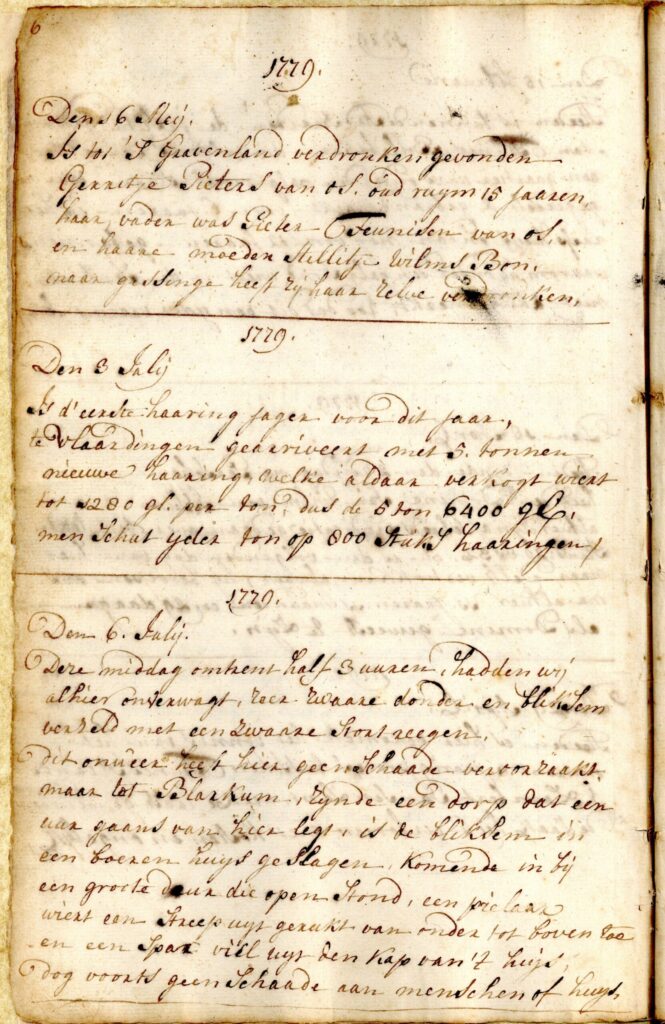 6
1779.
Den 16 Meij.
Is tot 'S Gravenland verdronken gevonden
Gerretje Pieters van os. oud ruym 15 jaaren,
haar vader was Pieter Teunisen van os,
en haare moeder Willitje Wilms Bon.
naar gissinge heeft zij haar zelve verdronken,
1779.
Den 3 Julij
Is d'eerste haaring jager voor dit jaar,
te vlaardingen gearriveert met 5. tonnen
nieuwe haaring welke aldaar verkogt wiert
tot 1280 gl. per ton, dus de 5 ton 6400 gl,
men schat ijder ton op 800 stuks haaringen
1779.
Den 6. Julij.
Deze middag omtrent half 3 uuren, hadden wij
alhier onverwagt, zeer zwaare donder en bliksem
verzeld met een zwaare stort reegen,
dit onweer heeft hier geen schaade veroorzaakt,
maar tot Blarkum, zynde een dorp dat een
uur gaans van hier legt, is de bliksem in
een boeren huys geslagen, komende in bij
een groote deur die open stond, een pielaar
wiert een streep uyt gerukt van onder tot boven toe
en een spar viel uyt den kap van 't huys,
dog voorts geen schaade aan menschen of huys,